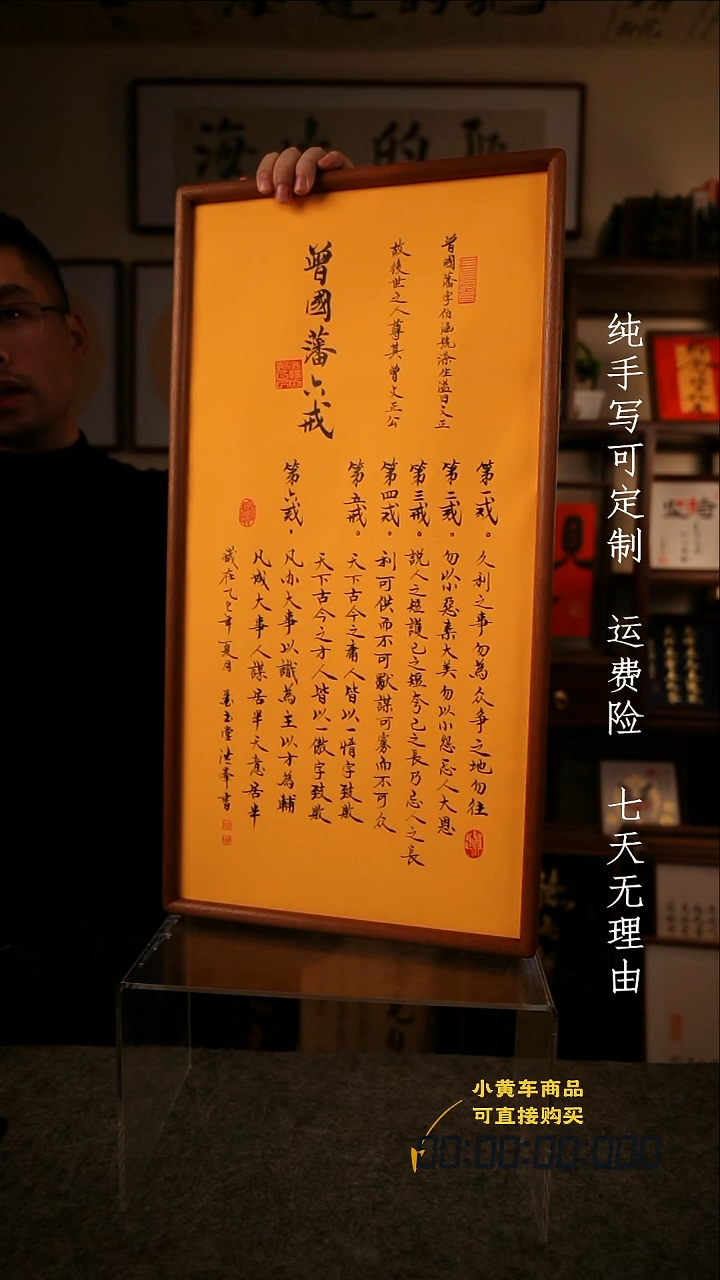 曾國藩字伯涵號滌生謚曰文正
故後世之人尊其曾文正公
曾國藩六戒
第一戒。久利之事勿為众爭之地勿往
第二戒。勿以小惡棄大美勿以小怨忘人大恩
第三戒。説人之短護己之短夸己之長乃忌人之長
第四戒。利可供而不可獸謀可寡而不可众
第五戒。天下古今之庸人皆以一惰字致敗
天下古今之才人皆以一傲字致敗
第六戒。凡办大事以識為主以才為輔
凡成大事人謀居半天意居半
歲在乙巳年夏月
纯手写可定制 运费险 七天无理由
小黄车商品
可直接购买